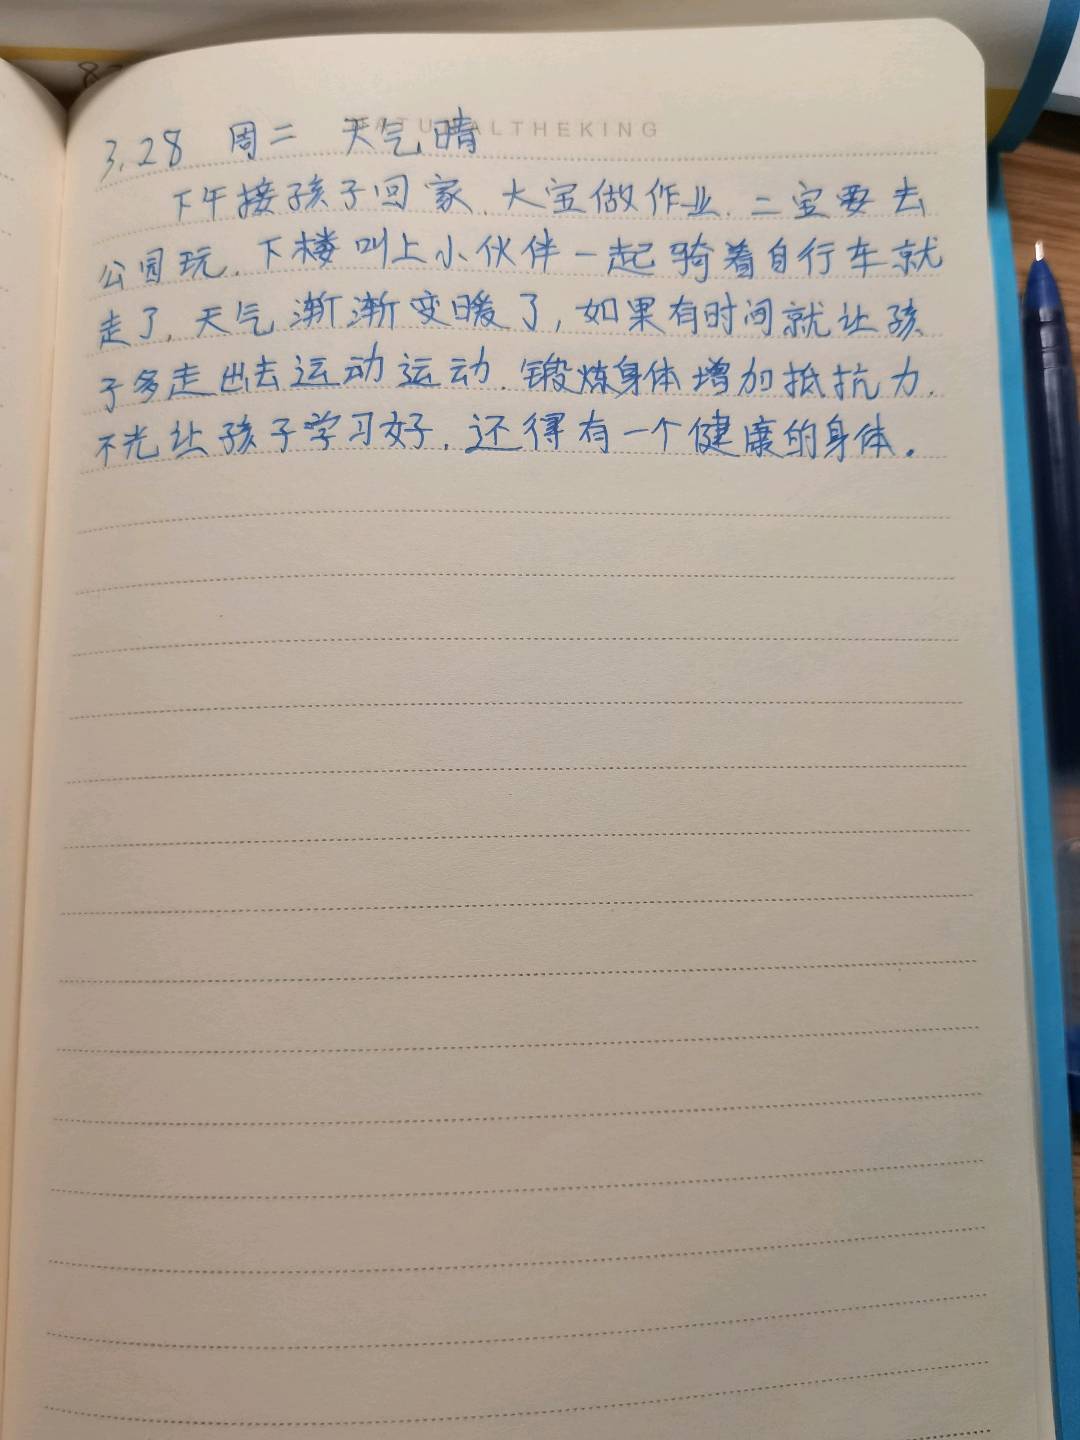 3.28 周二 天气晴
下午接孩子回家.大宝做作业.二宝要去
公园玩.下楼叫上小伙伴一起骑着自行车就
走了.天气渐渐变暖了,如果有时间就让孩
子多走出去运动运动.锻炼身体增加抵抗力.
不光让孩子学习好.还得有一个健康的身体.